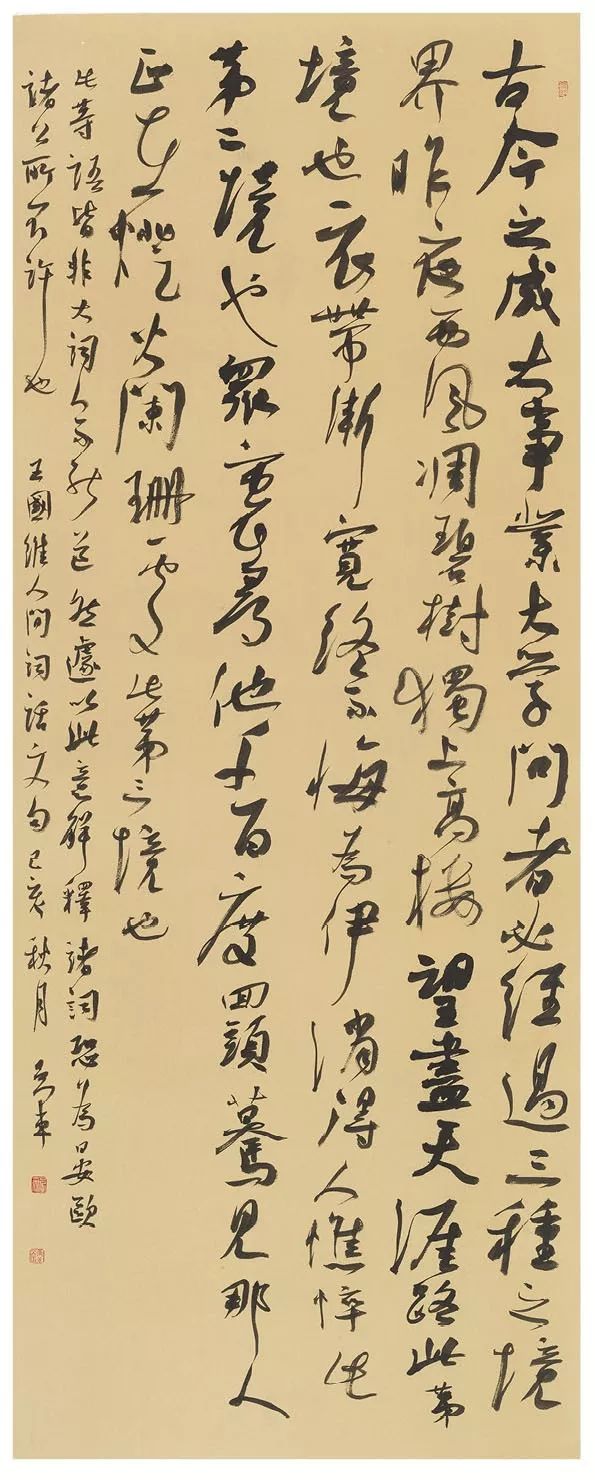 古今之成大事業大学問者必經過三種之境
界昨夜西風凋碧樹獨上高樓望盡天涯路此苐
境也衣帶漸寬終不悔為伊消得人憔悴此
苐二境也眾裏尋他千百度回頭驀見那人
正在燈火闌珊處此苐三境也
此等語皆非大詞人不能道然遽以此意解釋諸詞恐為晏歐
諸公所不許也 王國維人間詞話文句己亥秋月